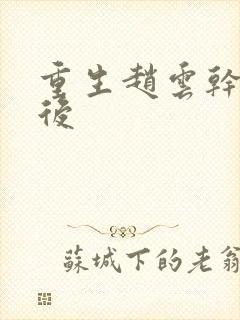 重生趙雲幹
後
蘇城下的老翁